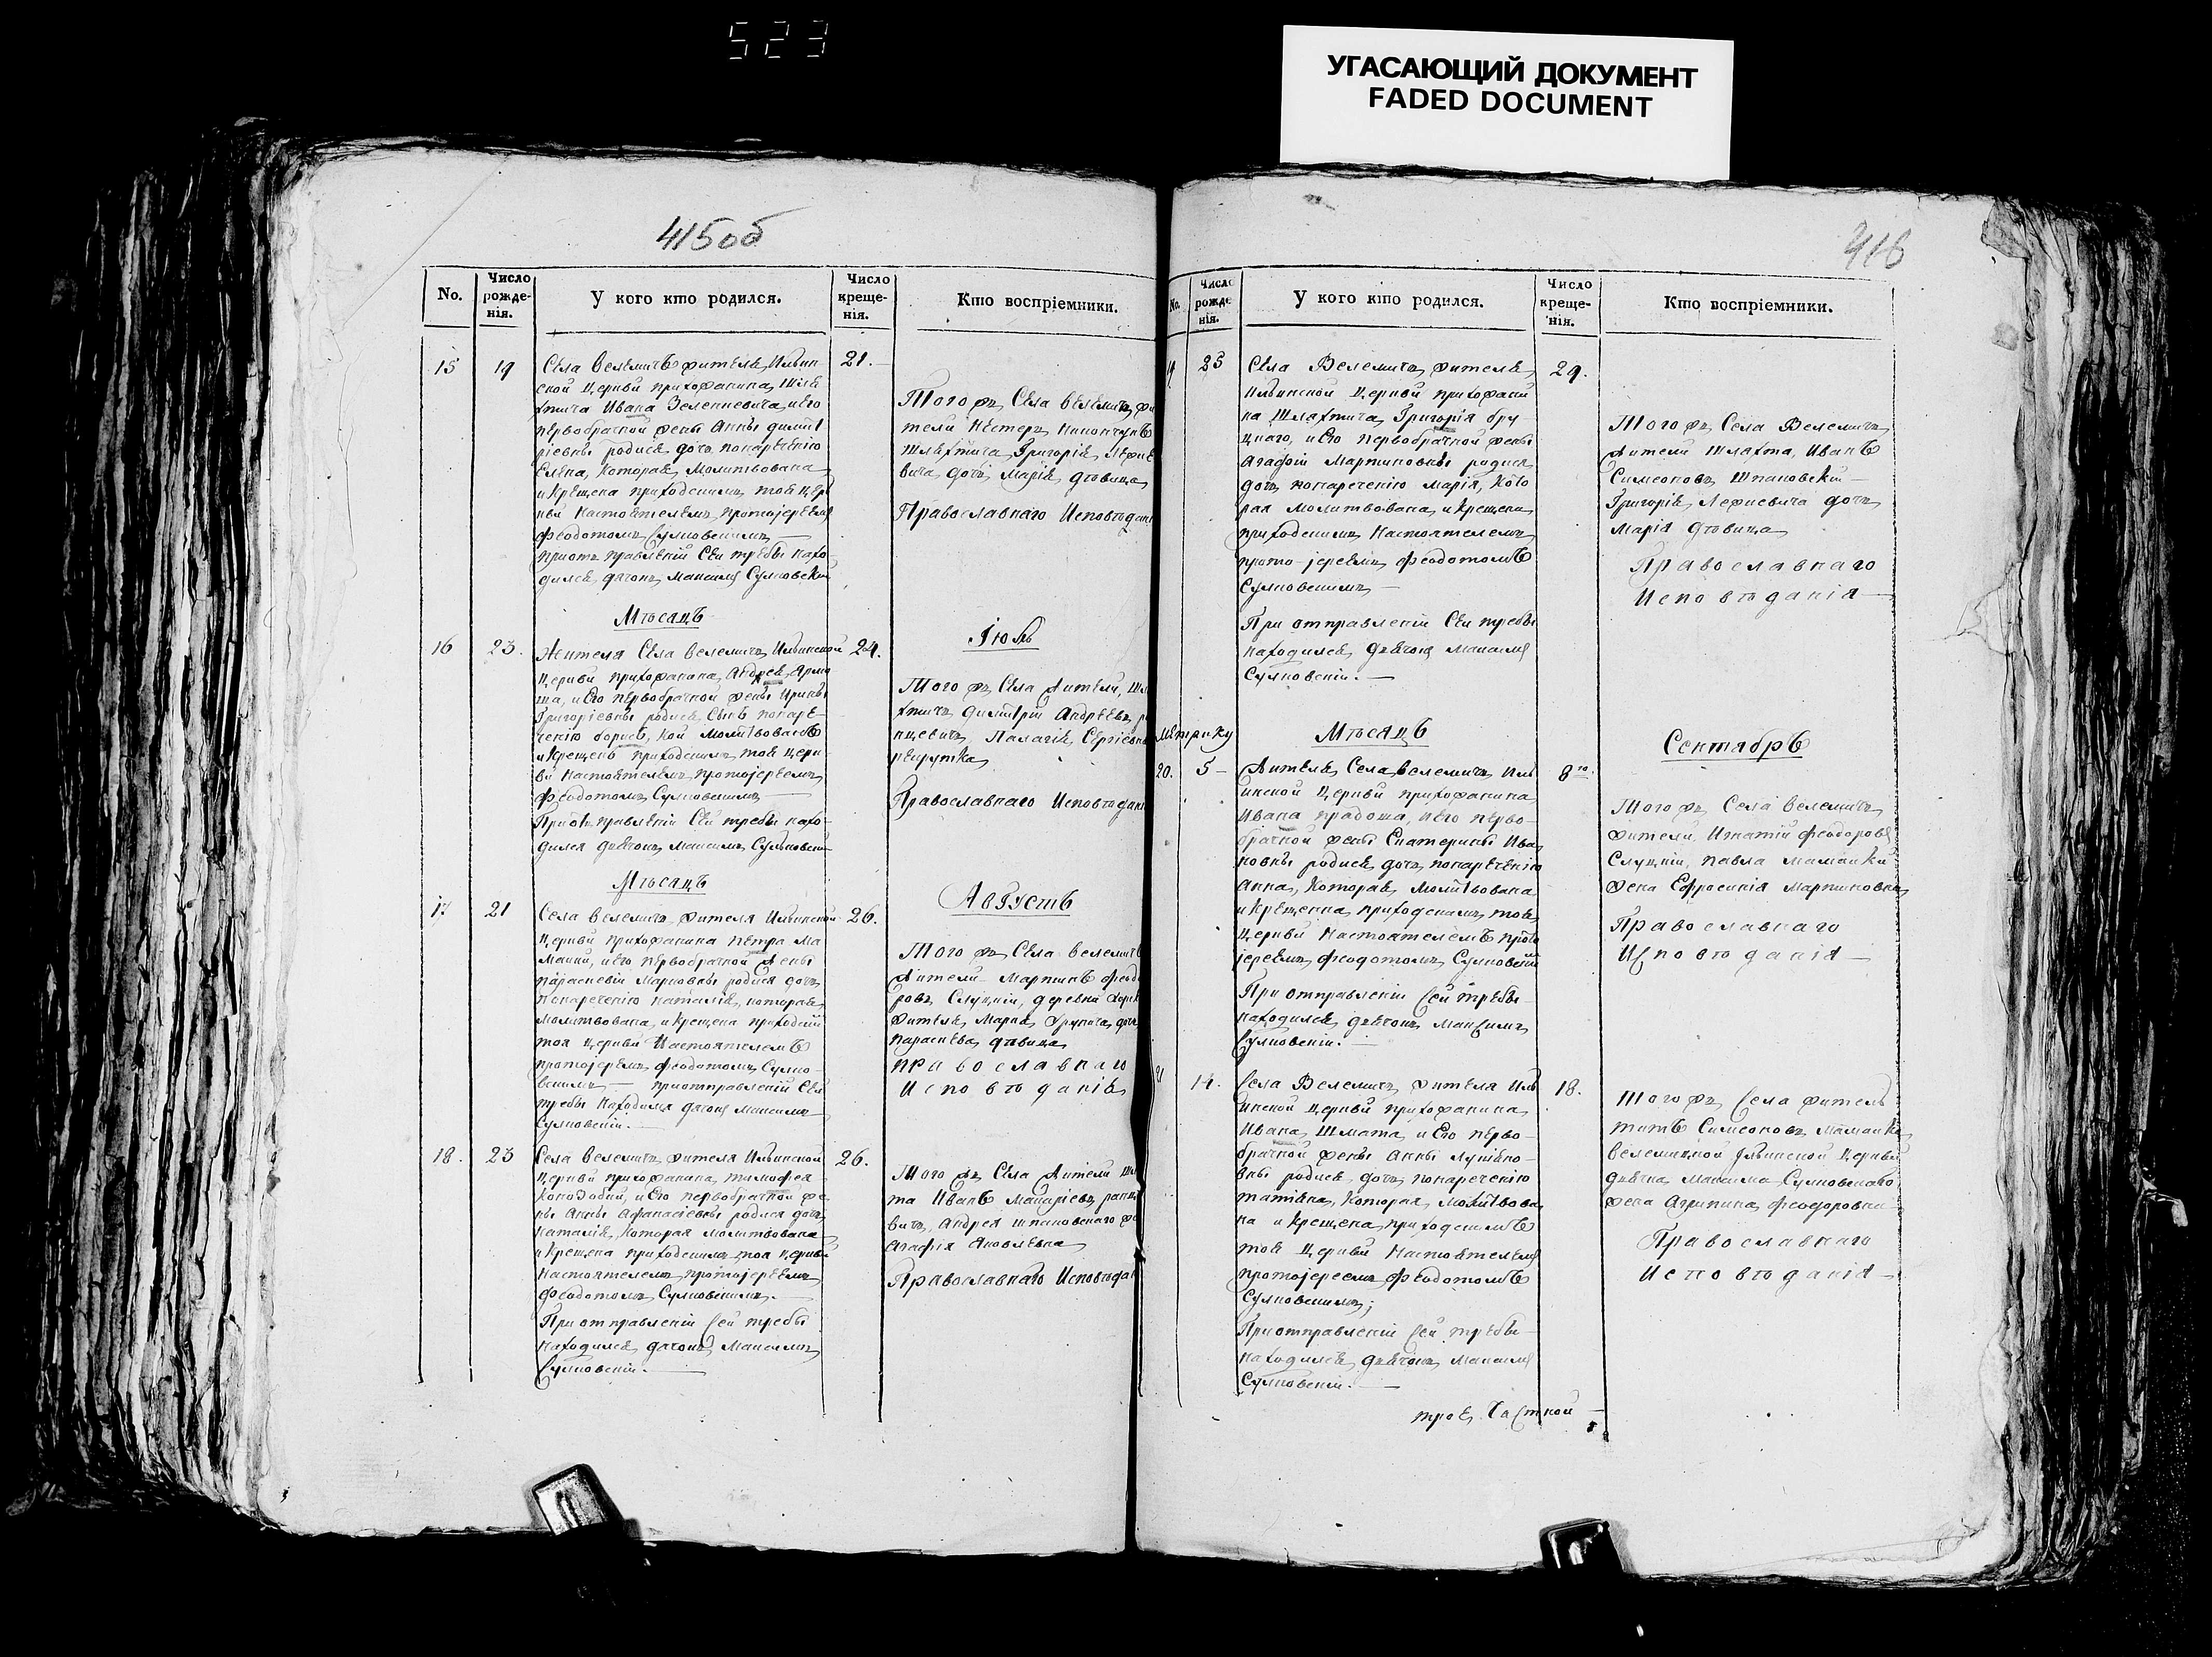 523
УГАСАЮЩИЙ ДОКУМЕНТ
FADED DOCUMENT
415об
No.
Число рожденія.
У кого кто родился.
Число крещенія.
Кто воспріемники.
15
19
Села Велемичъ жителя Ильин
ской Церкви прихожанина Шля
хтича Ивана Зеленкевича, и его
первобрачной жены Анны Димит
ріевны родися дочь понареченію
Елена, которая молитвована
и крещена приходскимъ тоя цер
кви настоятелемъ протоіереемъ
Феодотомъ Сулковскимъ
приотправленіи сеи требы нахо-
дился дячокъ Максимъ Сулковскій
21.
Того жъ Села Велемичъ жи
тели Нестеръ
Шляхтича Григорія
вича дочь Марія дѣвица
Православнаго Исповѣдан
Мѣсяцъ
Іюль
16
23.
Жителя Села Велемичъ Ильинской
Церкви прихожанина Андрея Ярмо
ша, и его первобрачной жены Ирины
Григоріевны родися сынъ понаре-
ченію Борисъ, кой молитвованъ
и крещенъ приходскимъ тоя церк-
ви настоятелемъ протоіереемъ
Феодотомъ Сулковскимъ
При отправленіи сеи требы нахо-
дился дьячокъ Максимъ Сулковскій
24.
Того жъ Села жители, Шля
хтичъ Димитрій Андреевъ
Палагія Сергіевна
Православнаго Исповѣдані
Мѣсяцъ
Августъ
17
21
Села Велемичъ жителя Ильинской
Церкви прихожанина Петра Ма
майки, и его первобрачной жены
Параскевіи Марковны родися дочь
понареченію Наталія, которая
молитвована, и крещена приходскимъ
тоя церкви настоятелемъ
протоіереемъ Феодотомъ Сулко-
вскимъ — приотправленіи сеи
требы находился дячокъ Максимъ
Сулковскій. —
26.
Того жъ Села Велемичъ
жители Мартинъ Феодо
ровъ Слуцкій, деревни
жителя Марка дочь
Параскева дѣвица
Православнаго
Исповѣданія
18.
23
Села Велемичъ жителя Ильинской
Церкви прихожанина Тимофея
и его первобрачной же
ны Анны Афанасіевны родися дочь
Наталія, которая молитвована
и крещена приходскимъ тоя церкви
настоятелемъ протоіереемъ
Феодотомъ Сулковскимъ. —
При отправленіи сей требы
находился дячокъ Максимъ
Сулковскій. —
26.
Того жъ Села жители Шлях
та Иванъ Макаріевъ
вичъ, Андрея Шпановскаго же
Агафія Яковлевна
Православнаго Исповѣдан
416
No.
Число рожденія.
У кого кто родился.
Число крещенія.
Кто воспріемники.
19
23
Села Велемичъ жителя
Ильинской Церкви прихожани
на Шляхтича Григорія Бру
цкаго, и его первобрачной жены
Агафіи Мартиновны родися
дочь понареченію Марія, кото
рая молитвована, и крещена
приходскимъ настоятелемъ
прото-іереемъ Феодотомъ
Сулковскимъ —
При отправленіи сеи требы
находился дьячокъ Максимъ
Сулковскій. —
29.
Того жъ Села Велемичъ
жители Шляхта, Иванъ
Симеоновъ Шпановскій —
Григорія дочь
Марія дѣвица
Православнаго
Исповѣданія —
метрику
Мѣсяцъ
Сентябрь
20.
5 —
Жителя Села Велемичъ Иль
инской Церкви прихожанина
Ивана Прадоша, и его перво-
брачной жены Екатерины Ива
новны родися дочь понареченію
Анна, которая молитвована
и крещенна приходскимъ тоя
Церкви настоятелемъ прото
іереемъ Феодотомъ Сулковскимъ
При отправленіи сей требы
находился дьячокъ Максимъ
Сулковскій. —
8го.
Того жъ Села Велемичъ
жители, Игнатій Феодоровъ
Слуцкій, Павла Мамайки
жена Ефросинія Мартиновна
Православнаго
Исповѣданія —
21
14.
Села Велемичъ жителя Иль
инской Церкви прихожанина
Ивана Шмата, и его перво-
брачной жены Анны
вны родися дочь понареченію
Татіяна, которая молитвова
на и крещена приходскимъ
тоя Церкви настоятелемъ
протоіереемъ Феодотомъ
Сулковскимъ;
При отправленіи сей требы
находился дьячокъ Максимъ
Сулковскій. —
18.
Того жъ Села житель
Титъ Симеоновъ Мамайка
Велемицкой Ильинской Церкви
дьячка Максима Сулковскаго
жена Агрипина Феодоровна
Православнаго
Исповѣданія —